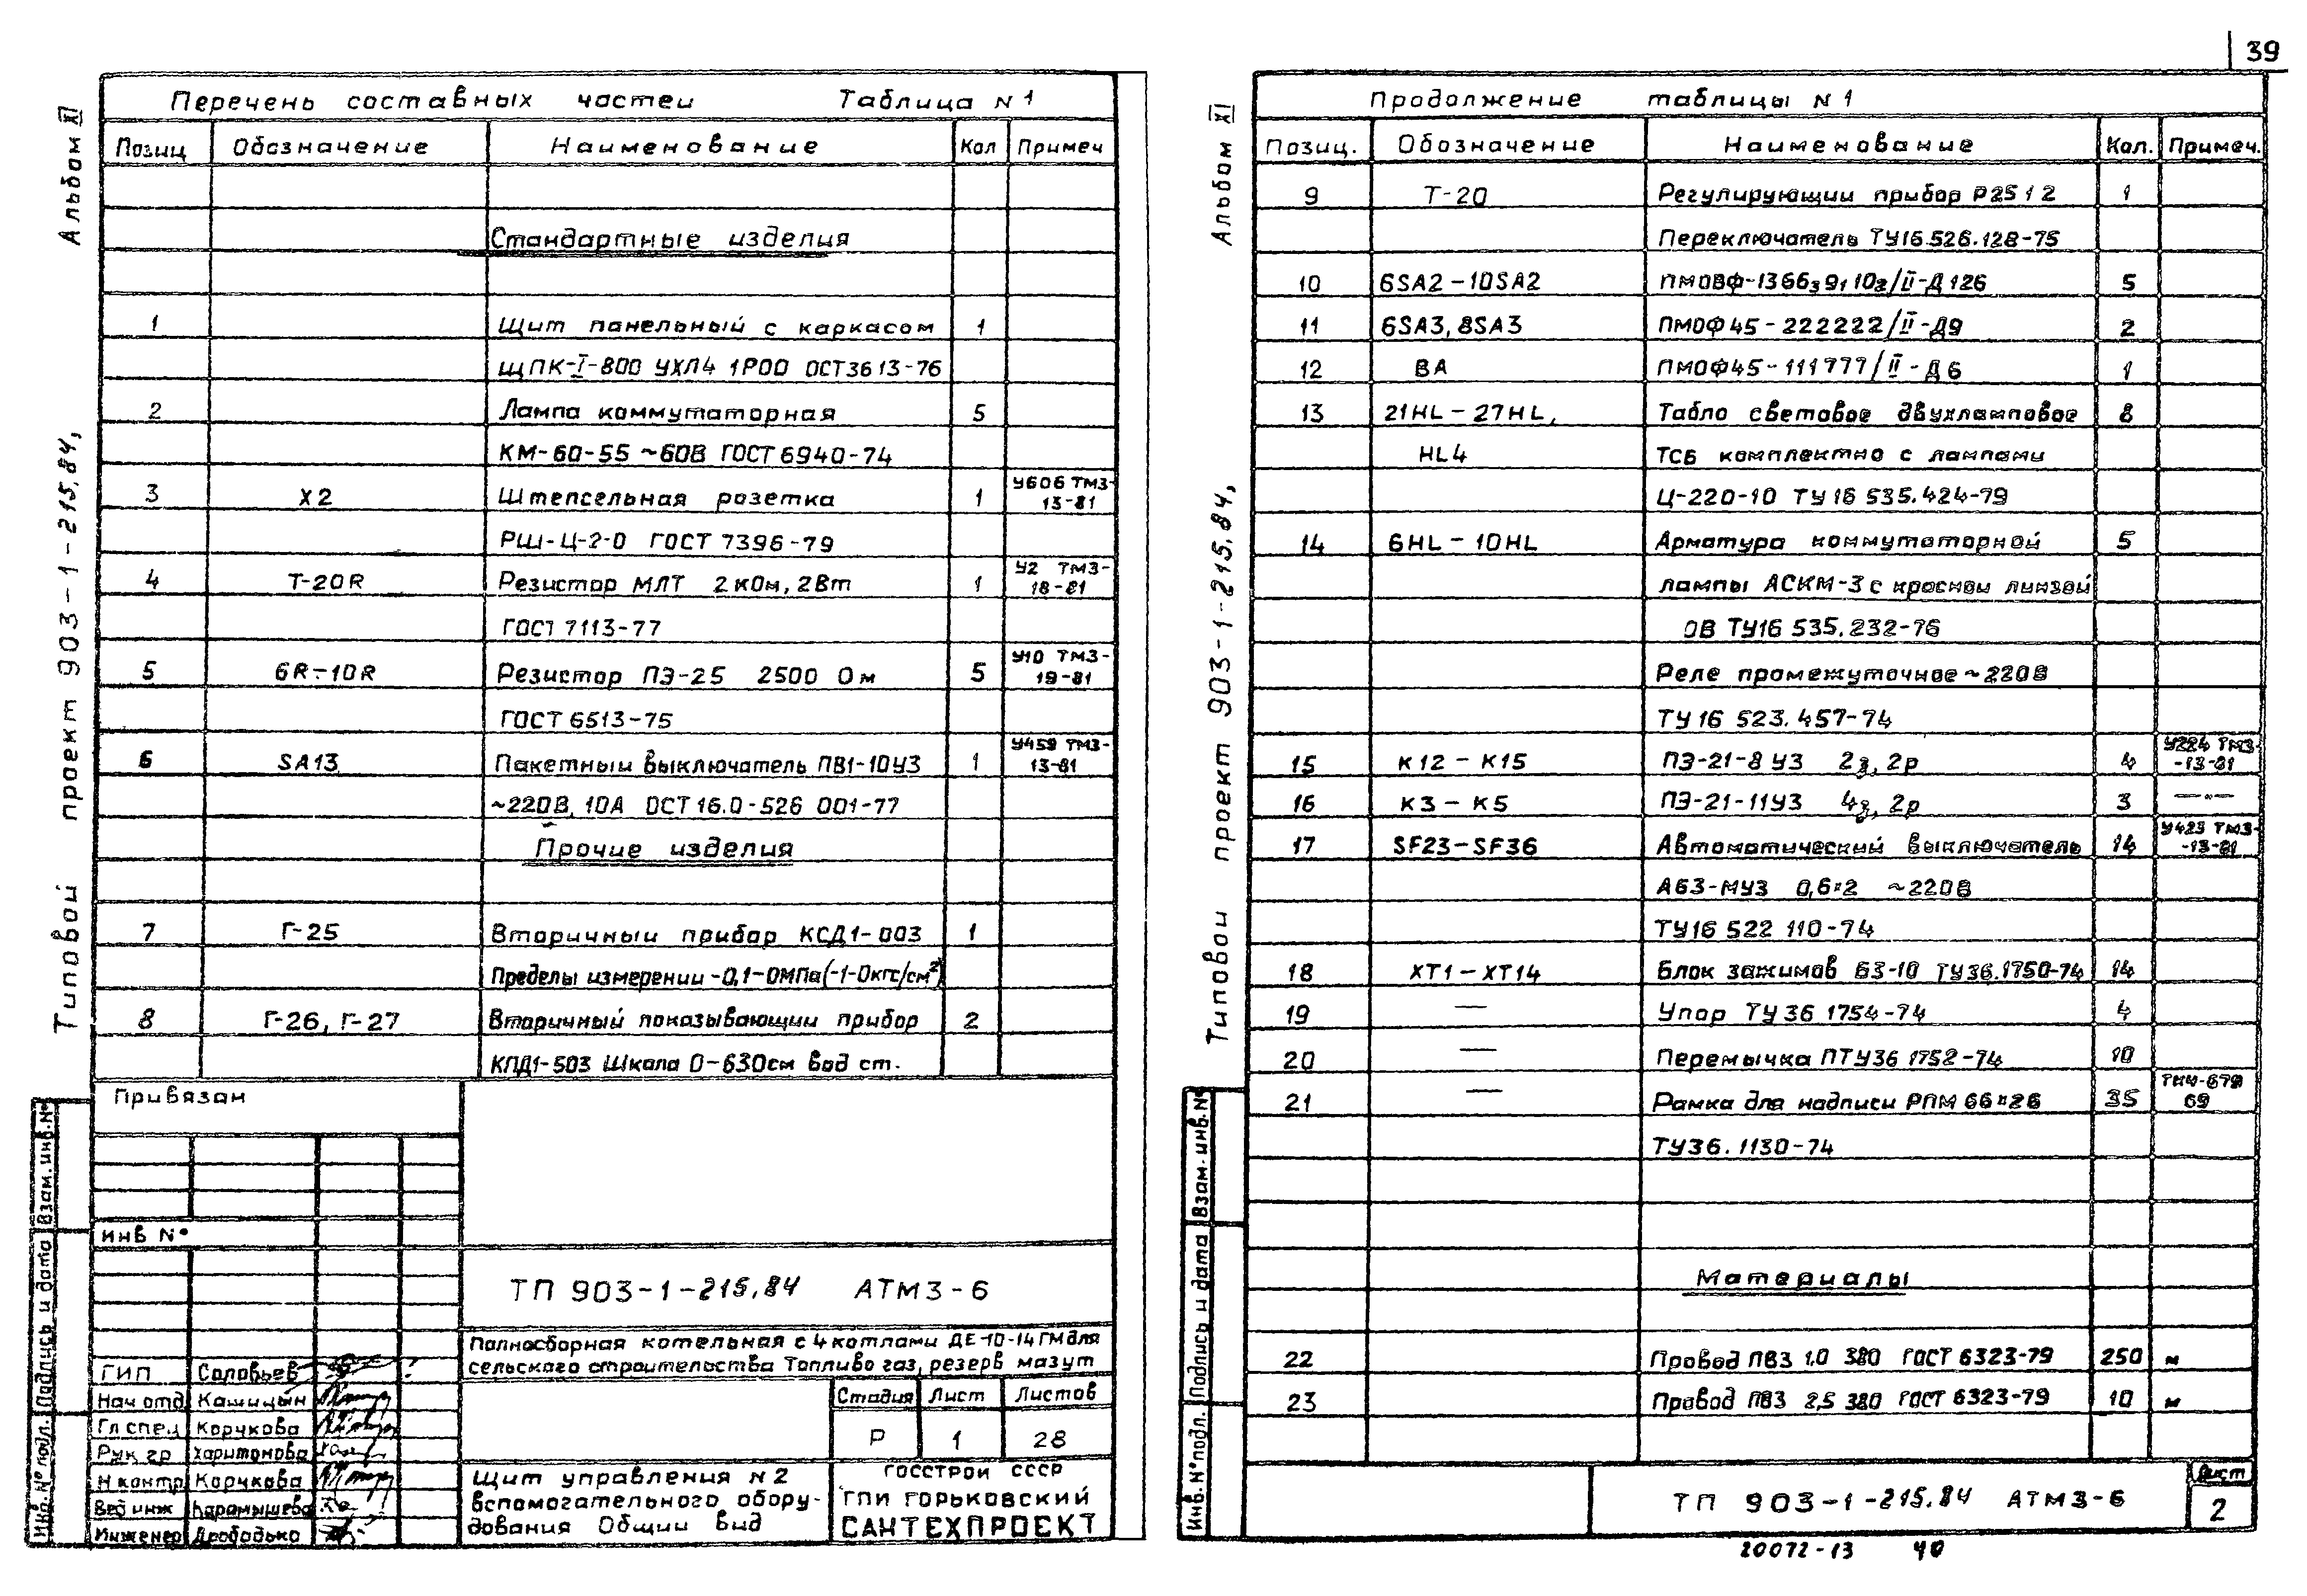 39
Альбом XI
Типовой проект 903-1-215.84,
Перечень составных частей Таблица N 1
Позиц Обозначение Наименование Кол Примеч
Стандартные изделия
1 Щит панельный с каркасом 1
ЩПК-I-800 УХЛ4 1Р00 ОСТ36 13-76
2 Лампа коммутаторная 5
КМ-60-55 ~60В ГОСТ 6940-74
3 X2 Штепсельная розетка 1 У606 ТМ3-13-81
РШ-Ц-2-0 ГОСТ 7396-79
4 Т-20R Резистор МЛТ 2кОм, 2Вт 1 У2 ТМ3-18-81
ГОСТ 7113-77
5 6R-10R Резистор ПЭ-25 2500 Ом 5 У10 ТМ3-19-81
ГОСТ 6513-75
6 SA13 Пакетный выключатель ПВ1-10У3 1 У459 ТМ3-13-81
~220В, 10А ОСТ 16.0-526 001-77
Прочие изделия
7 Г-25 Вторичный прибор КСД1-003 1
Пределы измерении -0,1-0МПа(-1-0кгс/см²)
8 Г-26, Г-27 Вторичный показывающии прибор 2
КПД1-503 Шкала 0-630см вод ст.
Привязан
Инв N°
ТП 903-1-215.84 АТМ3-6
Полносборная котельная с 4 котлами ДЕ-10-14ГМ для
сельского строительства Топливо газ, резерв мазут
ГИП Соловьев
Нач отд Кашицын
Гл спец Корчкова
Рук гр Харитонова
Н контр Корчкова
Вед инж Карамышева
Инженер Дробадько
Стадия Лист Листов
Р 1 28
Щит управления N 2
вспомогательного обору-
дования Общии вид
ГОССТРОИ СССР
ГПИ ГОРЬКОВСКИЙ
САНТЕХПРОЕКТ
Инв. N° подл. Подпись и дата Взам. инв. N°
Альбом XI
Типовой проект 903-1-215.84,
Продолжение таблицы N 1
Позиц. Обозначение Наименование Кол. Примеч.
9 Т-20 Регулирующии прибор Р25 1 2 1
Переключатель ТУ16.526.128-75
10 6SA2-10SA2 ПМОВФ-1366₃9₁10₂/II-Д126 5
11 6SA3, 8SA3 ПМОФ45-222222/II-Д9 2
12 ВА ПМОФ45-111777/II-Д6 1
13 21HL-27HL, Табло световое двухламповое 8
HL4 ТСБ комплектно с лампами
Ц-220-10 ТУ 16 535.424-79
14 6HL-10HL Арматура коммутаторной 5
лампы АСКМ-3 с краснои линзой
ОВ ТУ16 535.232-76
Реле промежуточное ~220В
ТУ 16 523.457-74
15 К12-К15 ПЭ-21-8 У3 2з, 2р 4 У224 ТМ3--13-81
16 К3-К5 ПЭ-21-11У3 4з, 2р 3 —"—
17 SF23-SF36 Автоматический выключатель 14 У423 ТМ3--13-81
А63-МУ3 0,6×2 ~220В
ТУ16 522 110-74
18 ХТ1-ХТ14 Блок зажимов Б3-10 ТУ36.1750-74 14
19 — Упор ТУ 36 1754-74 4
20 — Перемычка ПТУ36 1752-74 10
21 — Рамка для надписи РПМ 66×26 35 ТК4-679 69
ТУ36. 1130-74
Материалы
22 Провод ПВ3 1.0 380 ГОСТ 6323-79 250 м
23 Провод ПВ3 2,5 380 ГОСТ 6323-79 10 м
ТП 903-1-215.84 АТМ3-6
Лист
2
Инв. N° подл. Подпись и дата Взам. инв. N°
20072-13 40